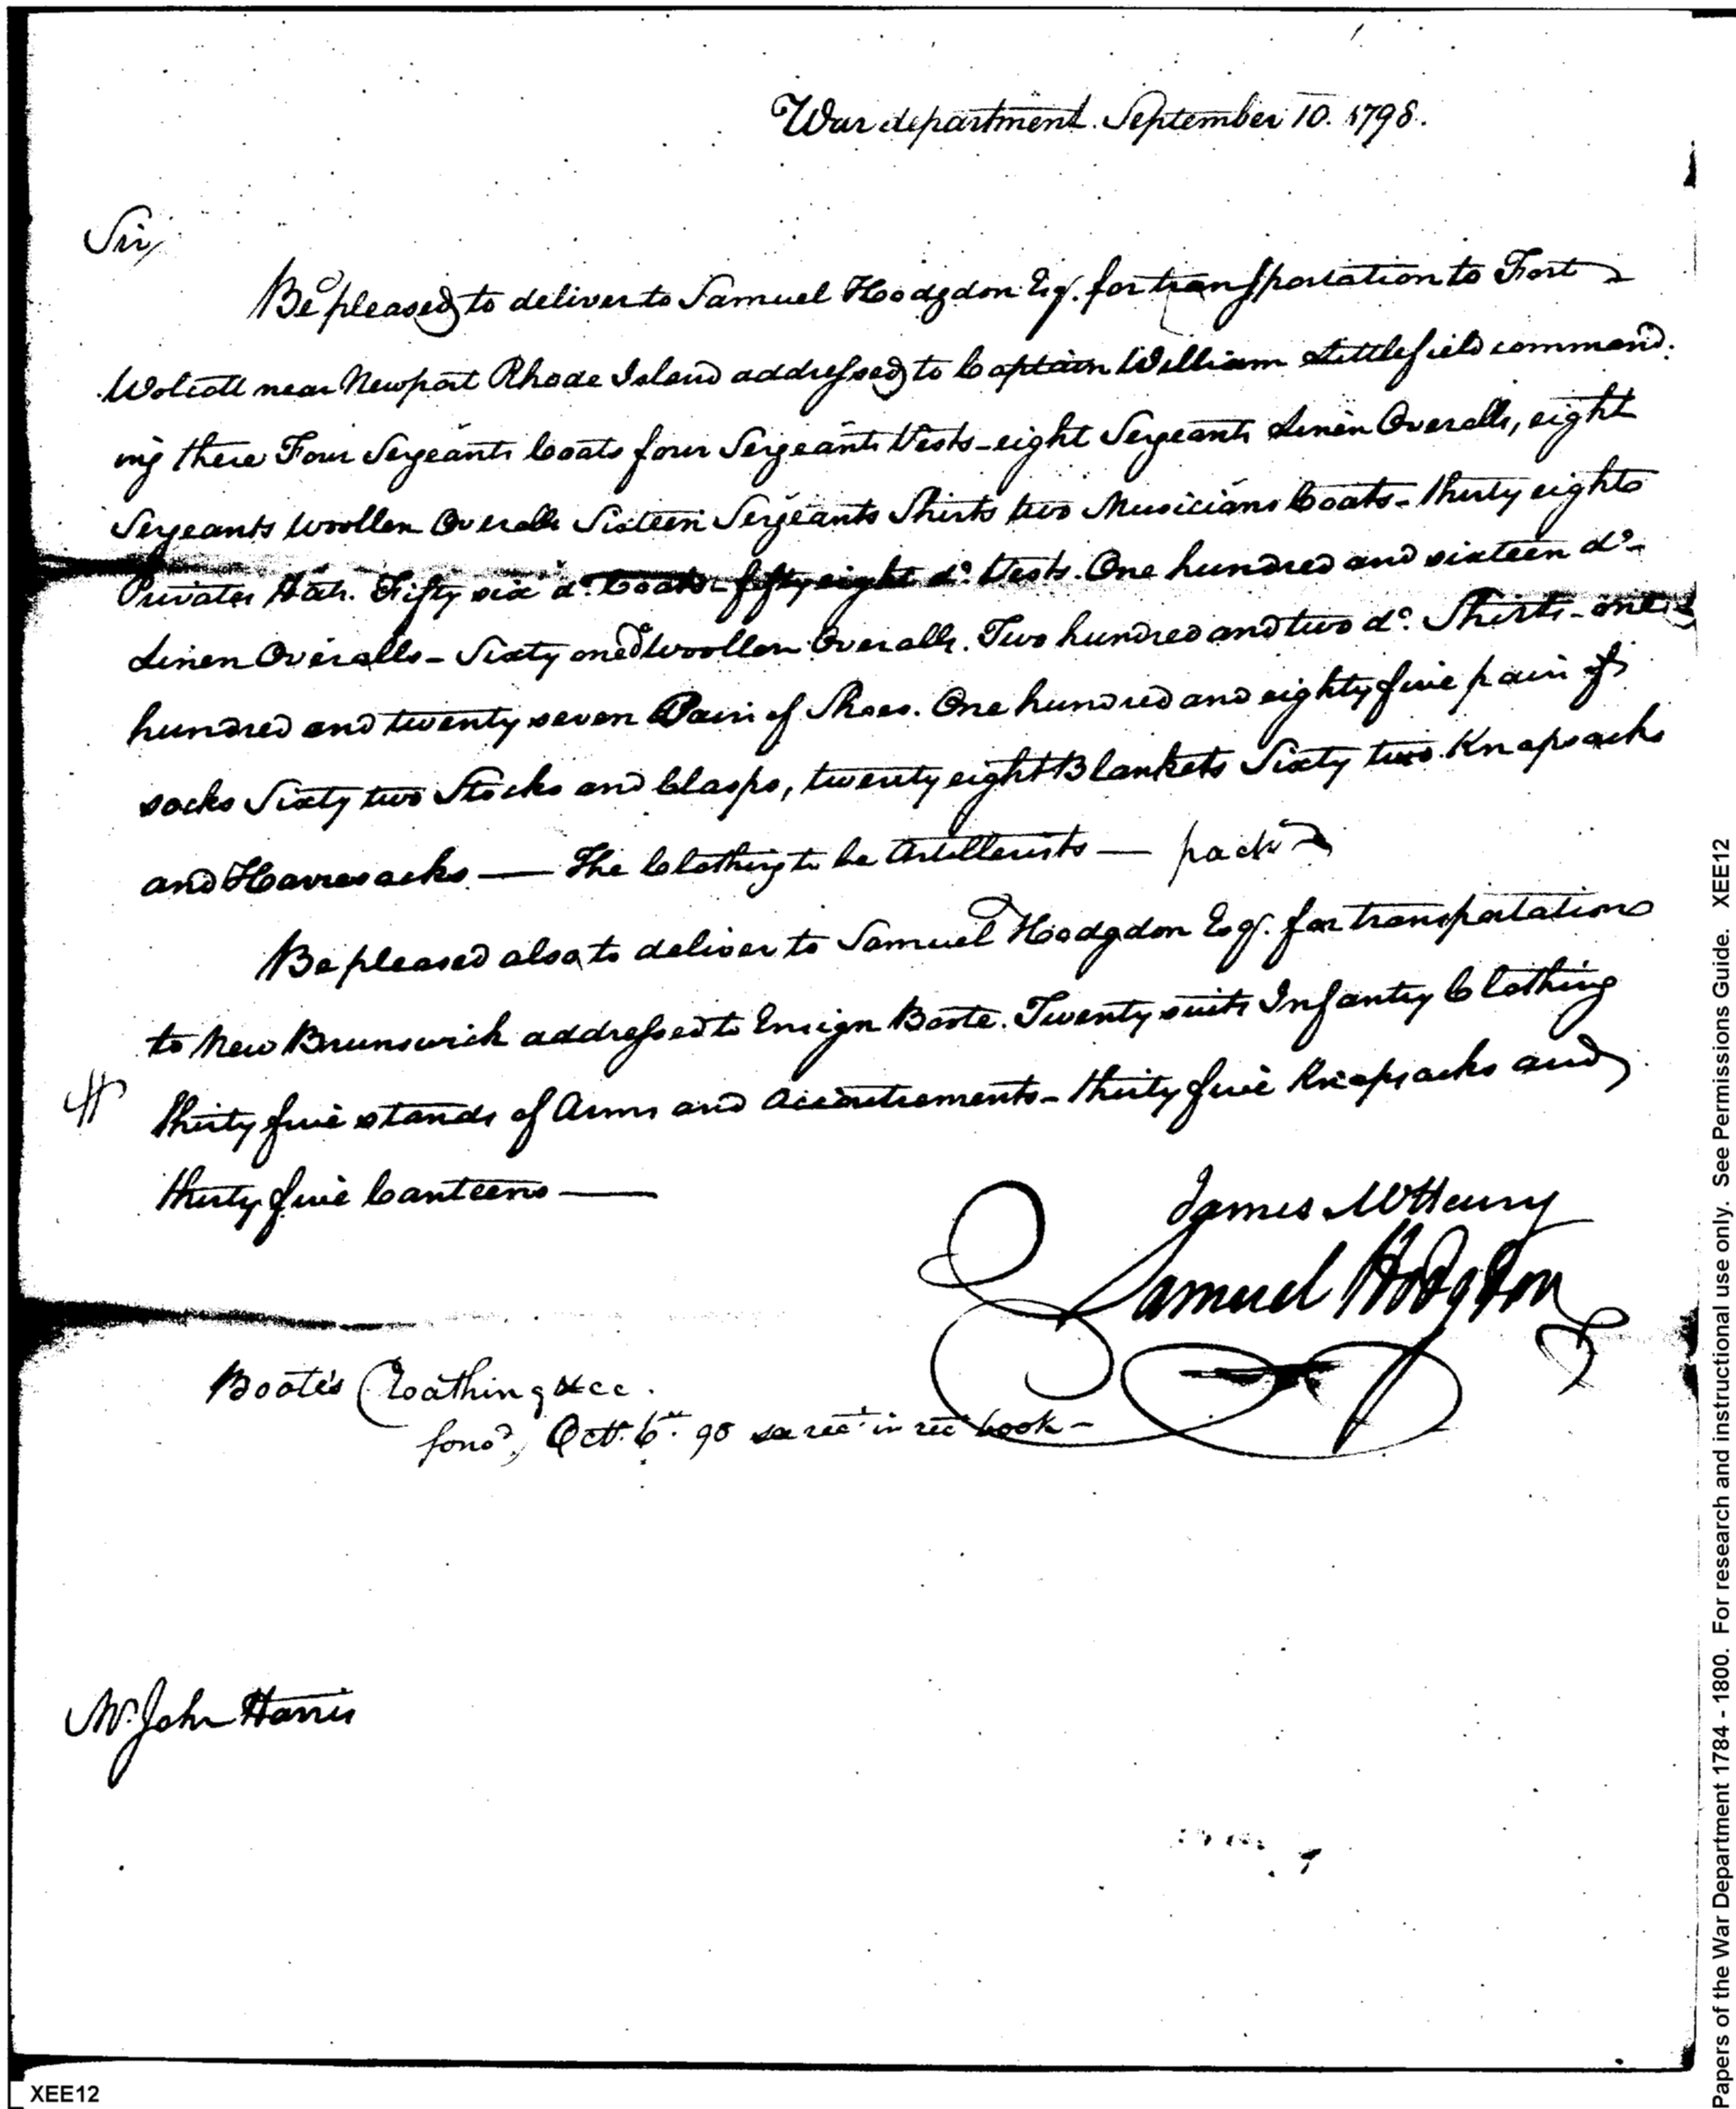 War department. September 10. 1798.
Sir,
Be pleased to deliver to Samuel Hodgdon Esq. for transportation to Fort
Wolcott near Newport Rhode Island addressed to Captain William Littlefield command.
ing there Four Sergeants Coats four Sergeants Vests - eight Sergeants Linen Overalls, eight
Sergeants Woollen Overalls Sixteen Sergeants Shirts two Musicians Coats - thirty eight
Privates Hats. Fifty six do. Coats - fifty eight do. Vests. One hundred and sixteen do.
Linen Overalls - Sixty one do Woollen Overalls. Two hundred and two do. Shirts - one
hundred and twenty seven Pair of Shoes. One hundred and eighty five pair of
socks Sixty two Stocks and Clasps, twenty eight Blankets Sixty two Knapsacks
and Haversacks — The Clothing to be Artillerists — packd
Be pleased also to deliver to Samuel Hodgdon Esq. for transportation
to New Brunswick addressed to Ensign Boote. Twenty suits Infantry Clothing
thirty five stands of Arms and Accoutrements - thirty five Knapsacks and
thirty five Canteens —
James McHenry
Samuel Hodgdon
Boote's Cloathing &cc.
Octr. 6th. 98 rect. in rect book -
Mr. John Harris
XEE12
Papers of the War Department 1784 - 1800. For research and instructional use only. See Permissions Guide. XEE12